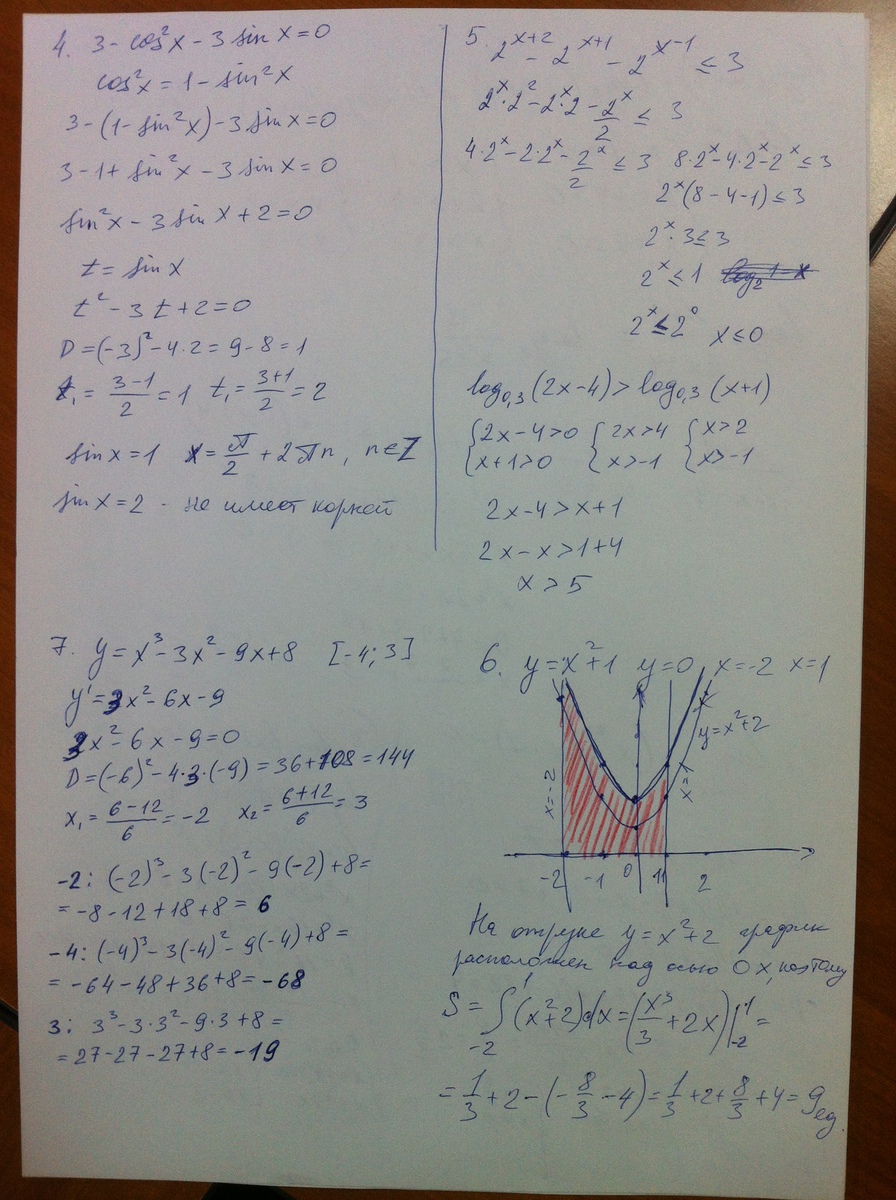 4. 3 - cos²x - 3 sin x = 0
cos²x = 1 - sin²x
3 - (1 - sin²x) - 3 sin x = 0
3 - 1 + sin²x - 3 sin x = 0
sin²x - 3 sin x + 2 = 0
t = sin x
t² - 3t + 2 = 0
D = (-3)² - 4·2 = 9 - 8 = 1
t₁ = (3-1)/2 = 1 t₁ = (3+1)/2 = 2
sin x = 1 x = π/2 + 2πn, n ∈ Z
sin x = 2 - не имеет корней
5. 2^(x+2) - 2^(x+1) - 2^(x-1) ≤ 3
2^x·2² - 2^x·2 - 2^x/2 ≤ 3
4·2^x - 2·2^x - 2^x/2 ≤ 3 8·2^x - 4·2^x - 2^x ≤ 3
2^x(8 - 4 - 1) ≤ 3
2^x·3 ≤ 3
2^x ≤ 1
2^x ≤ 2⁰ x ≤ 0
log₀,₃(2x-4) > log₀,₃(x+1)
{2x-4>0 {2x>4 {x>2
{x+1>0 {x>-1 {x>-1
2x-4 > x+1
2x - x > 1+4
x > 5
7. y = x³ - 3x² - 9x + 8 [-4; 3]
y' = 3x² - 6x - 9
3x² - 6x - 9 = 0
D = (-6)² - 4·3·(-9) = 36 + 108 = 144
x₁ = (6-12)/6 = -2 x₂ = (6+12)/6 = 3
-2: (-2)³ - 3(-2)² - 9(-2) + 8 =
= -8 - 12 + 18 + 8 = 6
-4: (-4)³ - 3(-4)² - 9(-4) + 8 =
= -64 - 48 + 36 + 8 = -68
3: 3³ - 3·3² - 9·3 + 8 =
= 27 - 27 - 27 + 8 = -19
6. y = x² + 1 y = 0 x = -2 x = 1
y = x² + 2
x = -2
x = 1
-2 -1 0 1 2
На отрезке y = x² + 2 график
расположен над осью Ox, поэтому
S = ∫₋₂¹ (x² + 2)dx = (x³/3 + 2x)|₋₂¹ =
= 1/3 + 2 - (-8/3 - 4) = 1/3 + 2 + 8/3 + 4 = 9 ед.